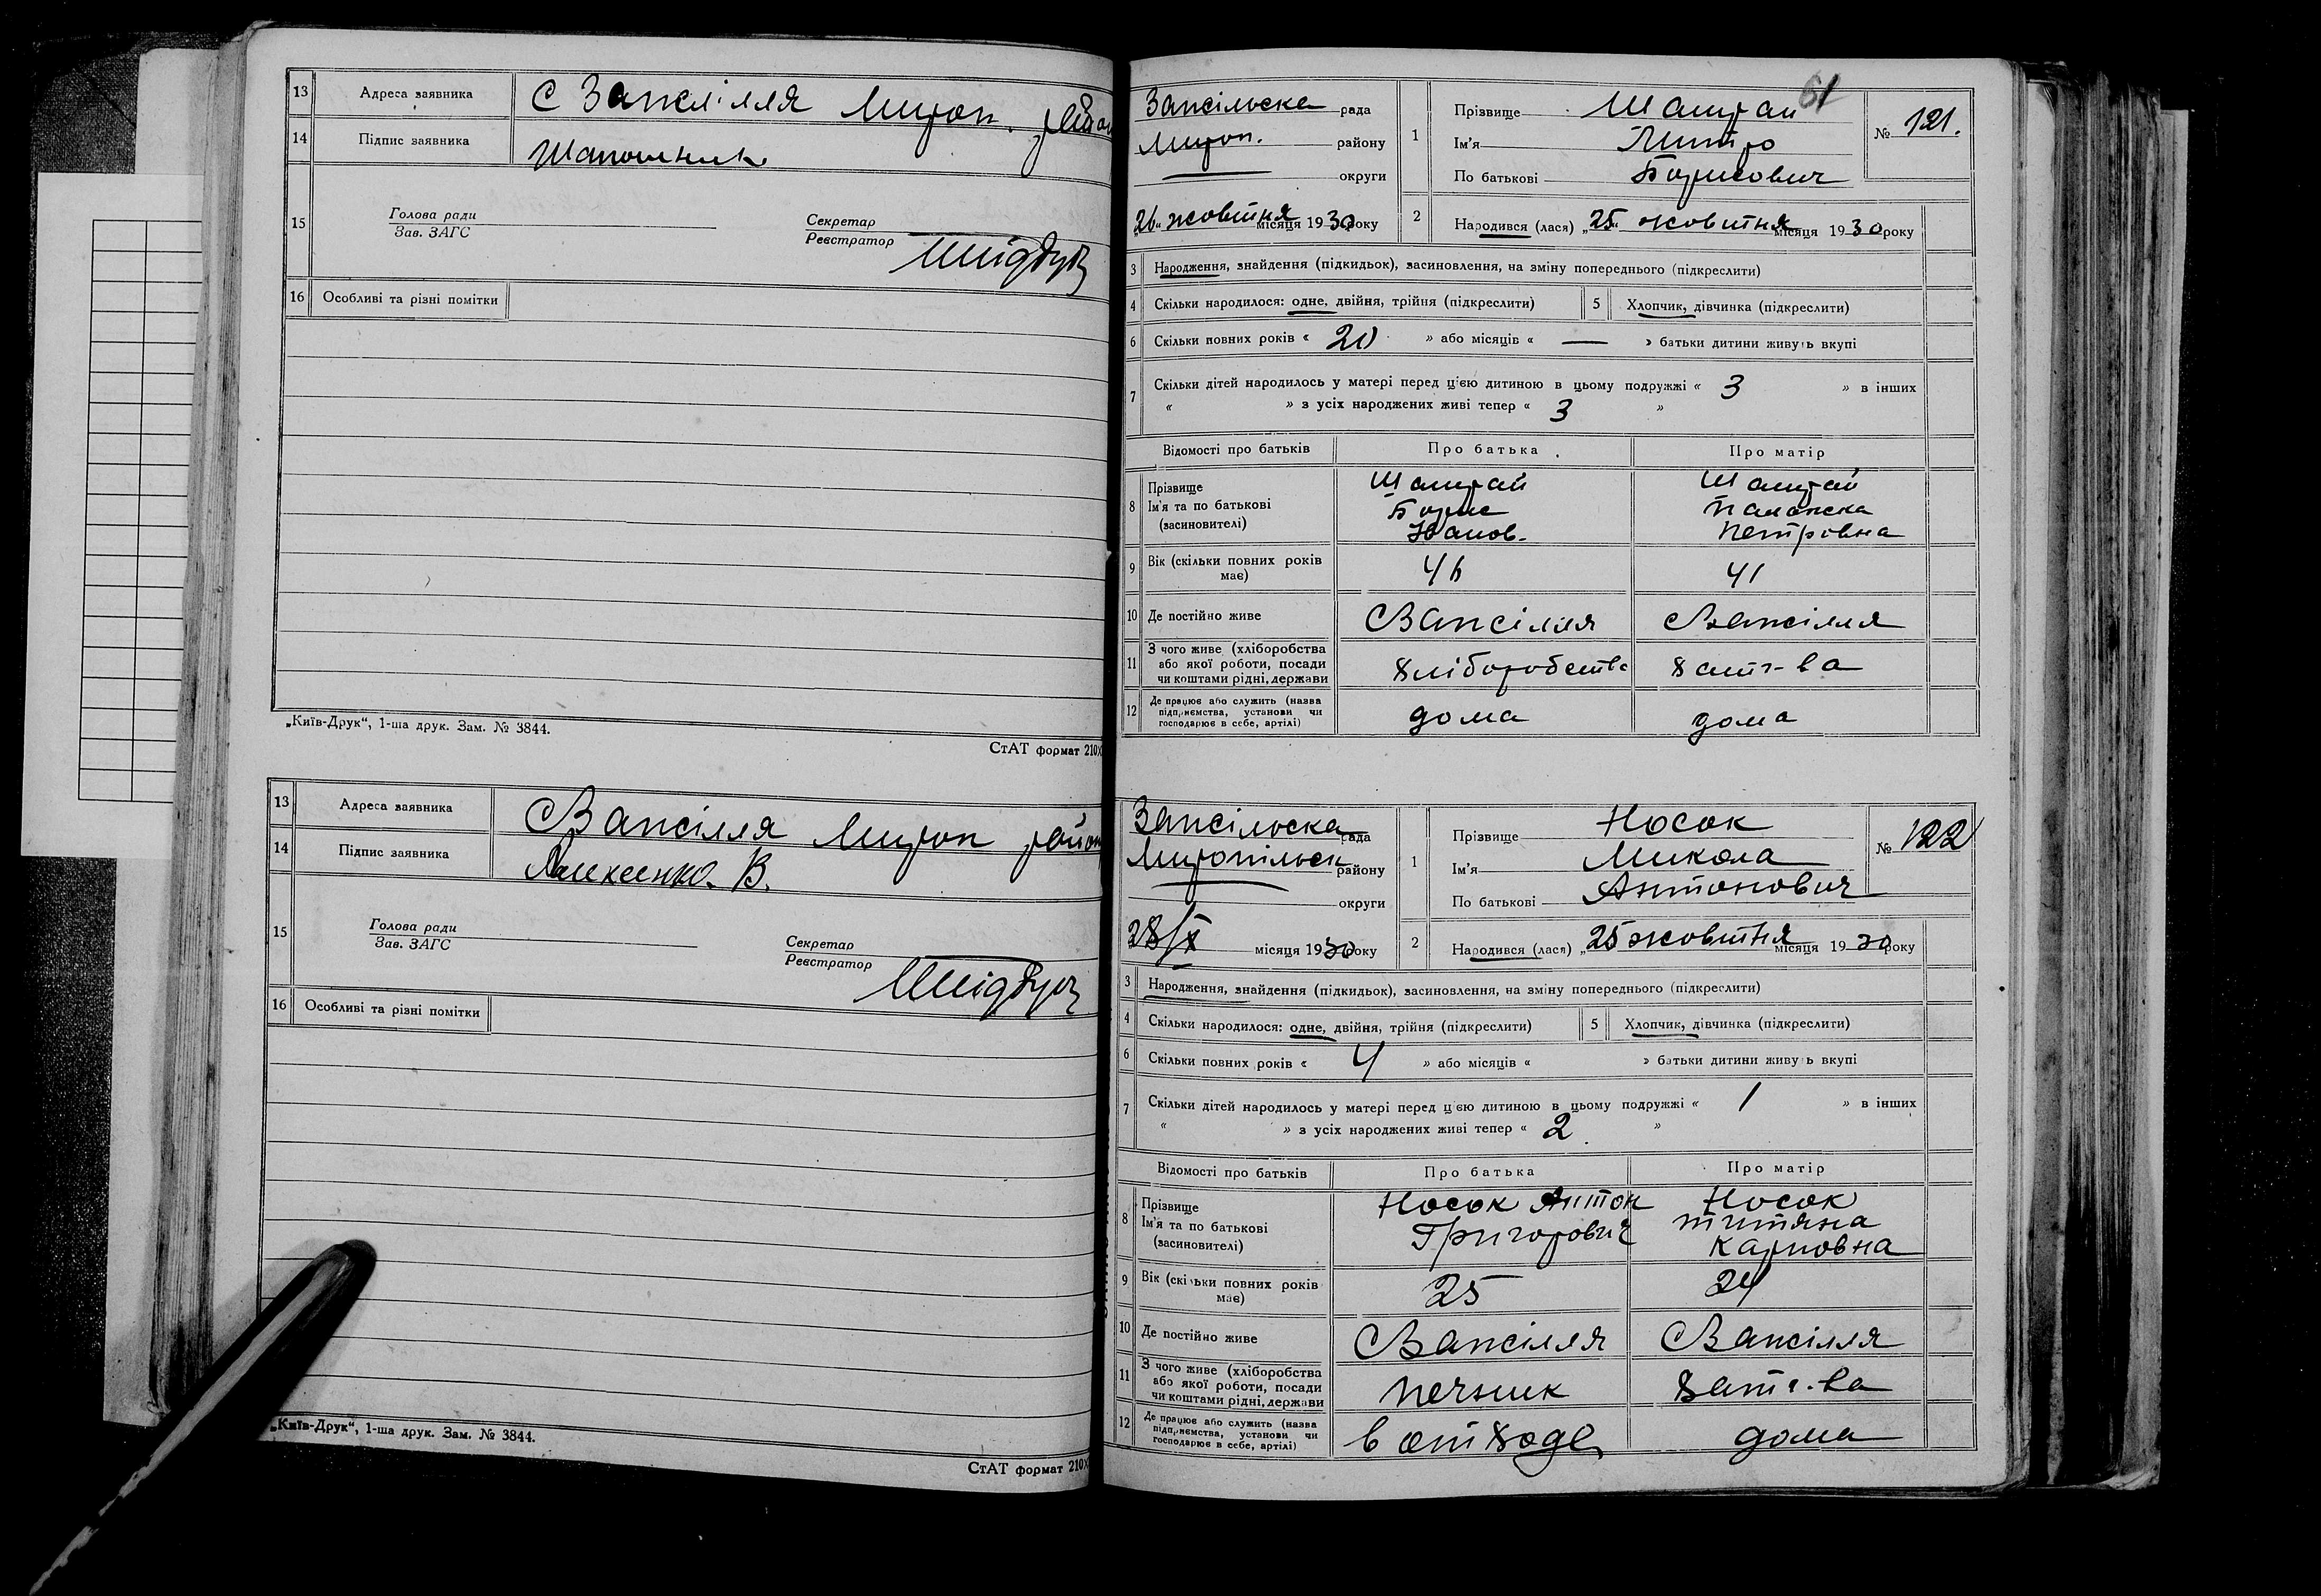 13 Адреса заявника С Запсілля Мироп. район
14 Підпис заявника Шапошник
15 Голова ради
Зав. ЗАГС
Секретар
Реєстратор
16 Особливі та різні помітки
„Київ-Друк“, 1-ша друк. Зам. № 3844.
СтАТ формат 210X
13 Адреса заявника С Запсілля Мироп район
14 Підпис заявника Алексенко В.
15 Голова ради
Зав. ЗАГС
Секретар
Реєстратор
16 Особливі та різні помітки
„Київ-Друк“, 1-ша друк. Зам. № 3844.
СтАТ формат 210X
61
Запсільска рада
Мироп. району
округи
„26“ жовтня місяця 1930 року
1 Прізвище
Ім'я Митро
По батькові Борисович
№ 121.
2 Народився (лася) „25“ жовтня місяця 1930 року
3 Народження, знайдення (підкидьок), засиновлення, на зміну попереднього (підкреслити)
4 Скільки народилося: одне, двійня, трійня (підкреслити) 5 Хлопчик, дівчинка (підкреслити)
6 Скільки повних років « 20 » або місяців « — » батьки дитини живуть вкупі
7 Скільки дітей народилось у матері перед цією дитиною в цьому подружжі « 3 » в інших
« » з усіх народжених живі тепер « 3 »
Відомості про батьків Про батька Про матір
8 Прізвище
Ім'я та по батькові Борис
(засиновителі) Іванов. Петрівна
9 Вік (скільки повних років має) 46 41
10 Де постійно живе С Запсілля С Запсілля
11 З чого живе (хліборобства
або якої роботи, посади хліборобства хат-ва
чи коштами рідні, держави
12 Де працює або служить (назва
підприємства, установи чи дома дома
господарює в себе, артілі)
Запсільска рада
Миропільск району
округи
28/X місяця 1930 року
1 Прізвище Носок
Ім'я Микола
По батькові Антонович
№ 122
2 Народився (лася) „25 жовтня місяця 1930 року
3 Народження, знайдення (підкидьок), засиновлення, на зміну попереднього (підкреслити)
4 Скільки народилося: одне, двійня, трійня (підкреслити) 5 Хлопчик, дівчинка (підкреслити)
6 Скільки повних років « 4 » або місяців « » батьки дитини живуть вкупі
7 Скільки дітей народилось у матері перед цією дитиною в цьому подружжі « 1 » в інших
« » з усіх народжених живі тепер « 2 »
Відомості про батьків Про батька Про матір
8 Прізвище Носок Антон Носок
Ім'я та по батькові Григорович Титяна
(засиновителі) Карповна
9 Вік (скільки повних років має) 25 24
10 Де постійно живе С Запсілля С Запсілля
11 З чого живе (хліборобства
або якої роботи, посади печник хат-ва
чи коштами рідні, держави
12 Де працює або служить (назва
підприємства, установи чи в отходе дома
господарює в себе, артілі)